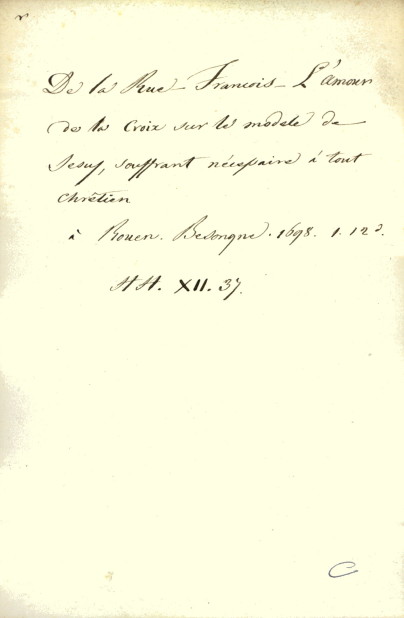 De la Rue - François - L'amour
de la Croix sur le modele de
Jesus, souffrant nécessaire à tout
chrêtien
à Rouen. Besongne. 1698. 1. 12°.
HH. XII. 37.
C